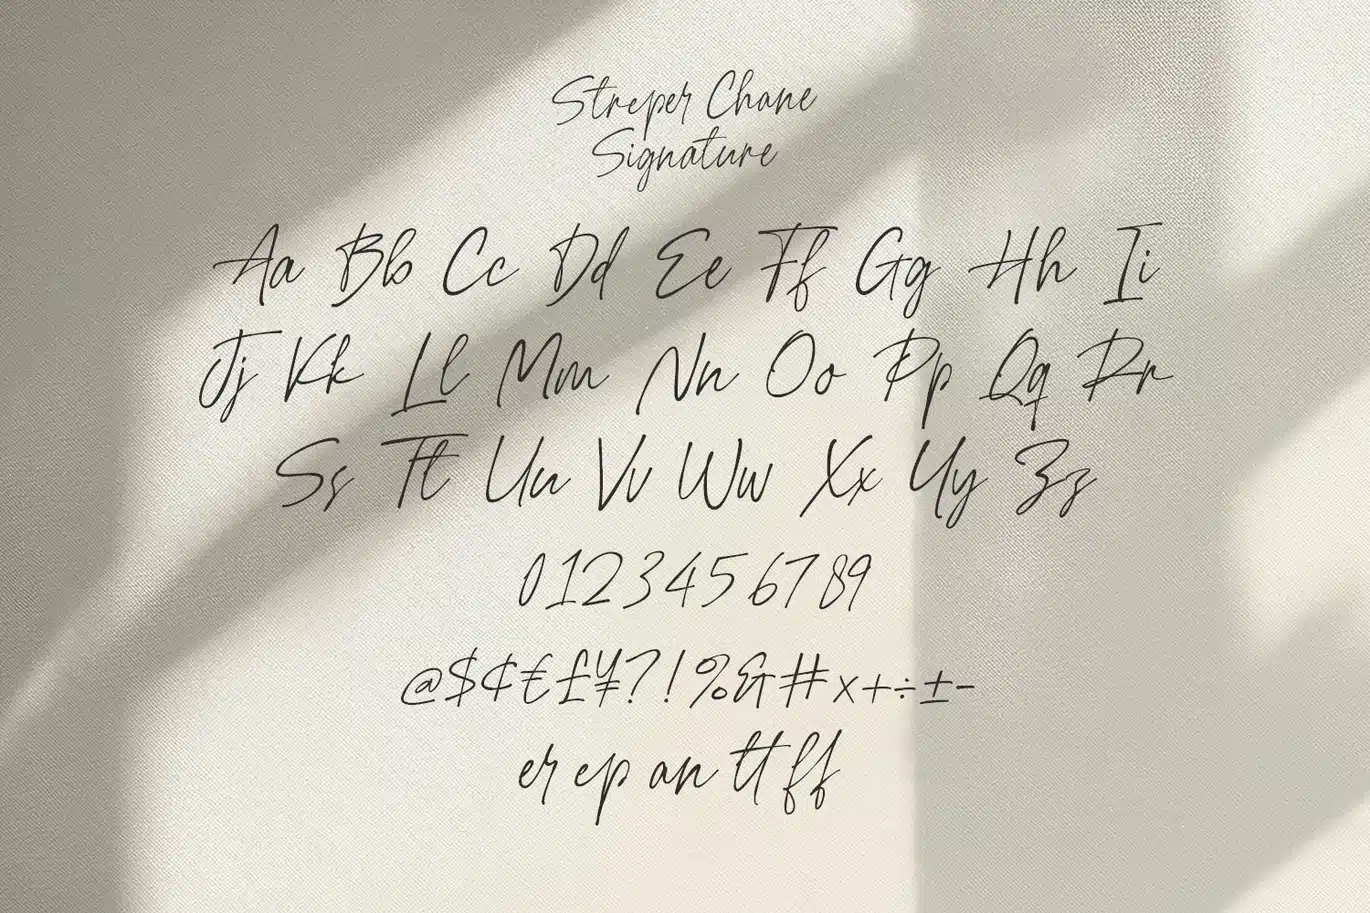 Streper Chane
Signature
Aa Bb Cc Dd Ee Ff Gg Hh Ii
Jj Kk Ll Mm Nn Oo Pp Qq Rr
Ss Tt Uu Vv Ww Xx Yy Zz
0123456789
@$¢€£¥?!%&#×+÷±-
er ep an tt ff